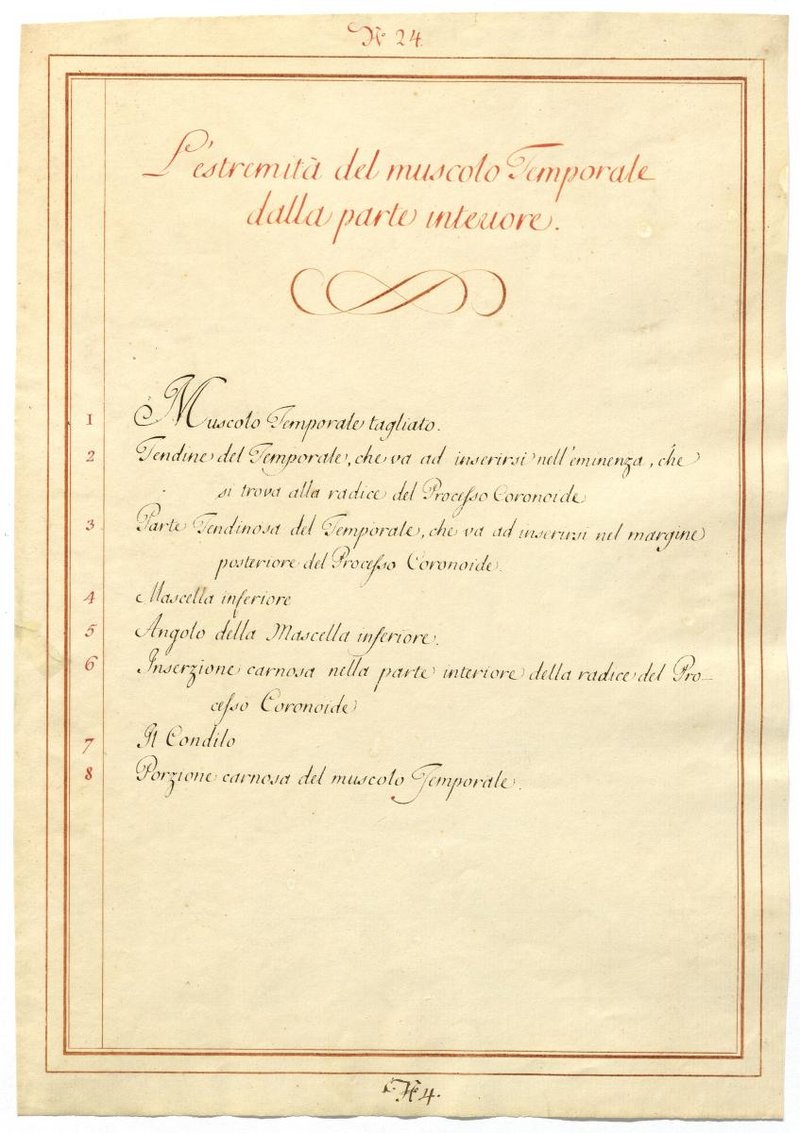 N.º 24.
L'estremità del muscolo Temporale
dalla parte interiore.
1 Muscolo Temporale tagliato.
2 Tendine del Temporale, che va ad inserirsi nell'eminenza, che
si trova alla radice del Processo Coronoide
3 Parte Tendinosa del Temporale, che va ad inserirsi nel margine
posteriore del Processo Coronoide.
4 Mascella inferiore
5 Angolo della Mascella inferiore.
6 Inserzione carnosa nella parte interiore della radice del Pro-
cesso Coronoide
7 Il Condilo
8 Porzione carnosa del muscolo Temporale.
4.